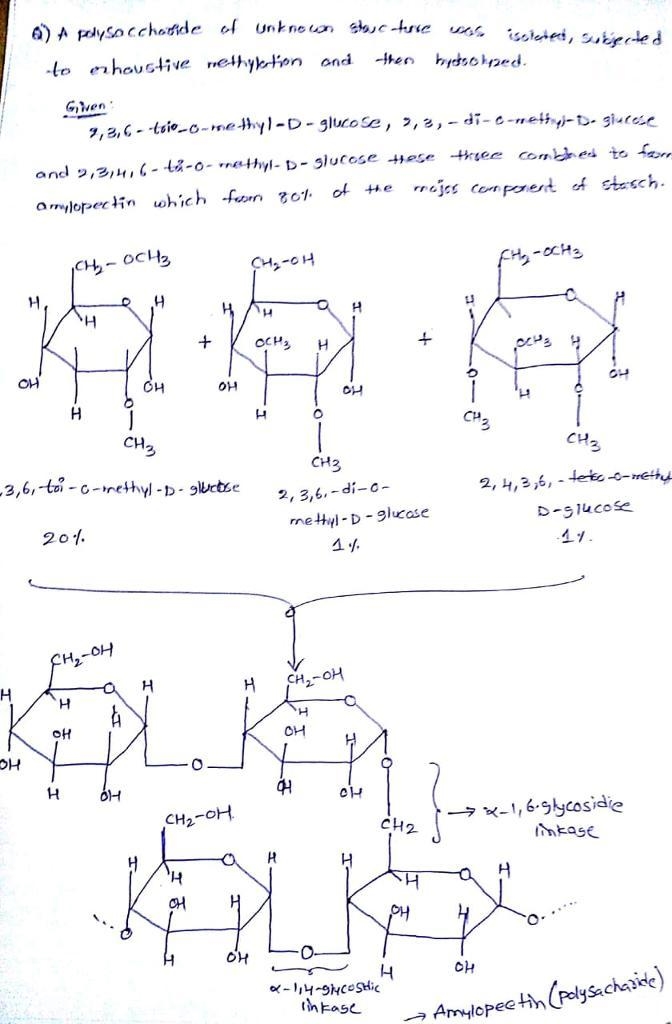 Q) A polysaccharide of unknown structure was isolated, subjected
to exhaustive methylation and then hydrolyzed.
Given:
2,3,6-trio-o-methyl-D-glucose, 2,3,-di-o-methyl-D-glucose
and 2,3,4,6-tà-o-methyl-D-glucose these three combined to form
amylopectin which from 80% of the major component of starch.
CH2-OCH3 CH2-OH CH2-OCH3
H O H H O H H O H
H H
+ OCH3 H + OCH3 H
OH OH OH OH O OH
H O H O H O
CH3 CH3 CH3 CH3
,3,6,-tri-o-methyl-D-glucose 2,3,6,-di-o- 2,4,3,6,-tetra-o-methyl
methyl-D-glucose D-glucose
20% 1% 1%
CH2-OH CH2-OH
H O H H O
H H
OH H OH H
OH O O
H OH OH OH
α-1,6-glycosidic
linkage
CH2-OH CH2
H O H H O H
H H
OH H OH H
O O O
H OH H OH
α-1,4-glycosidic
linkage
→ Amylopectin (polysacharide)